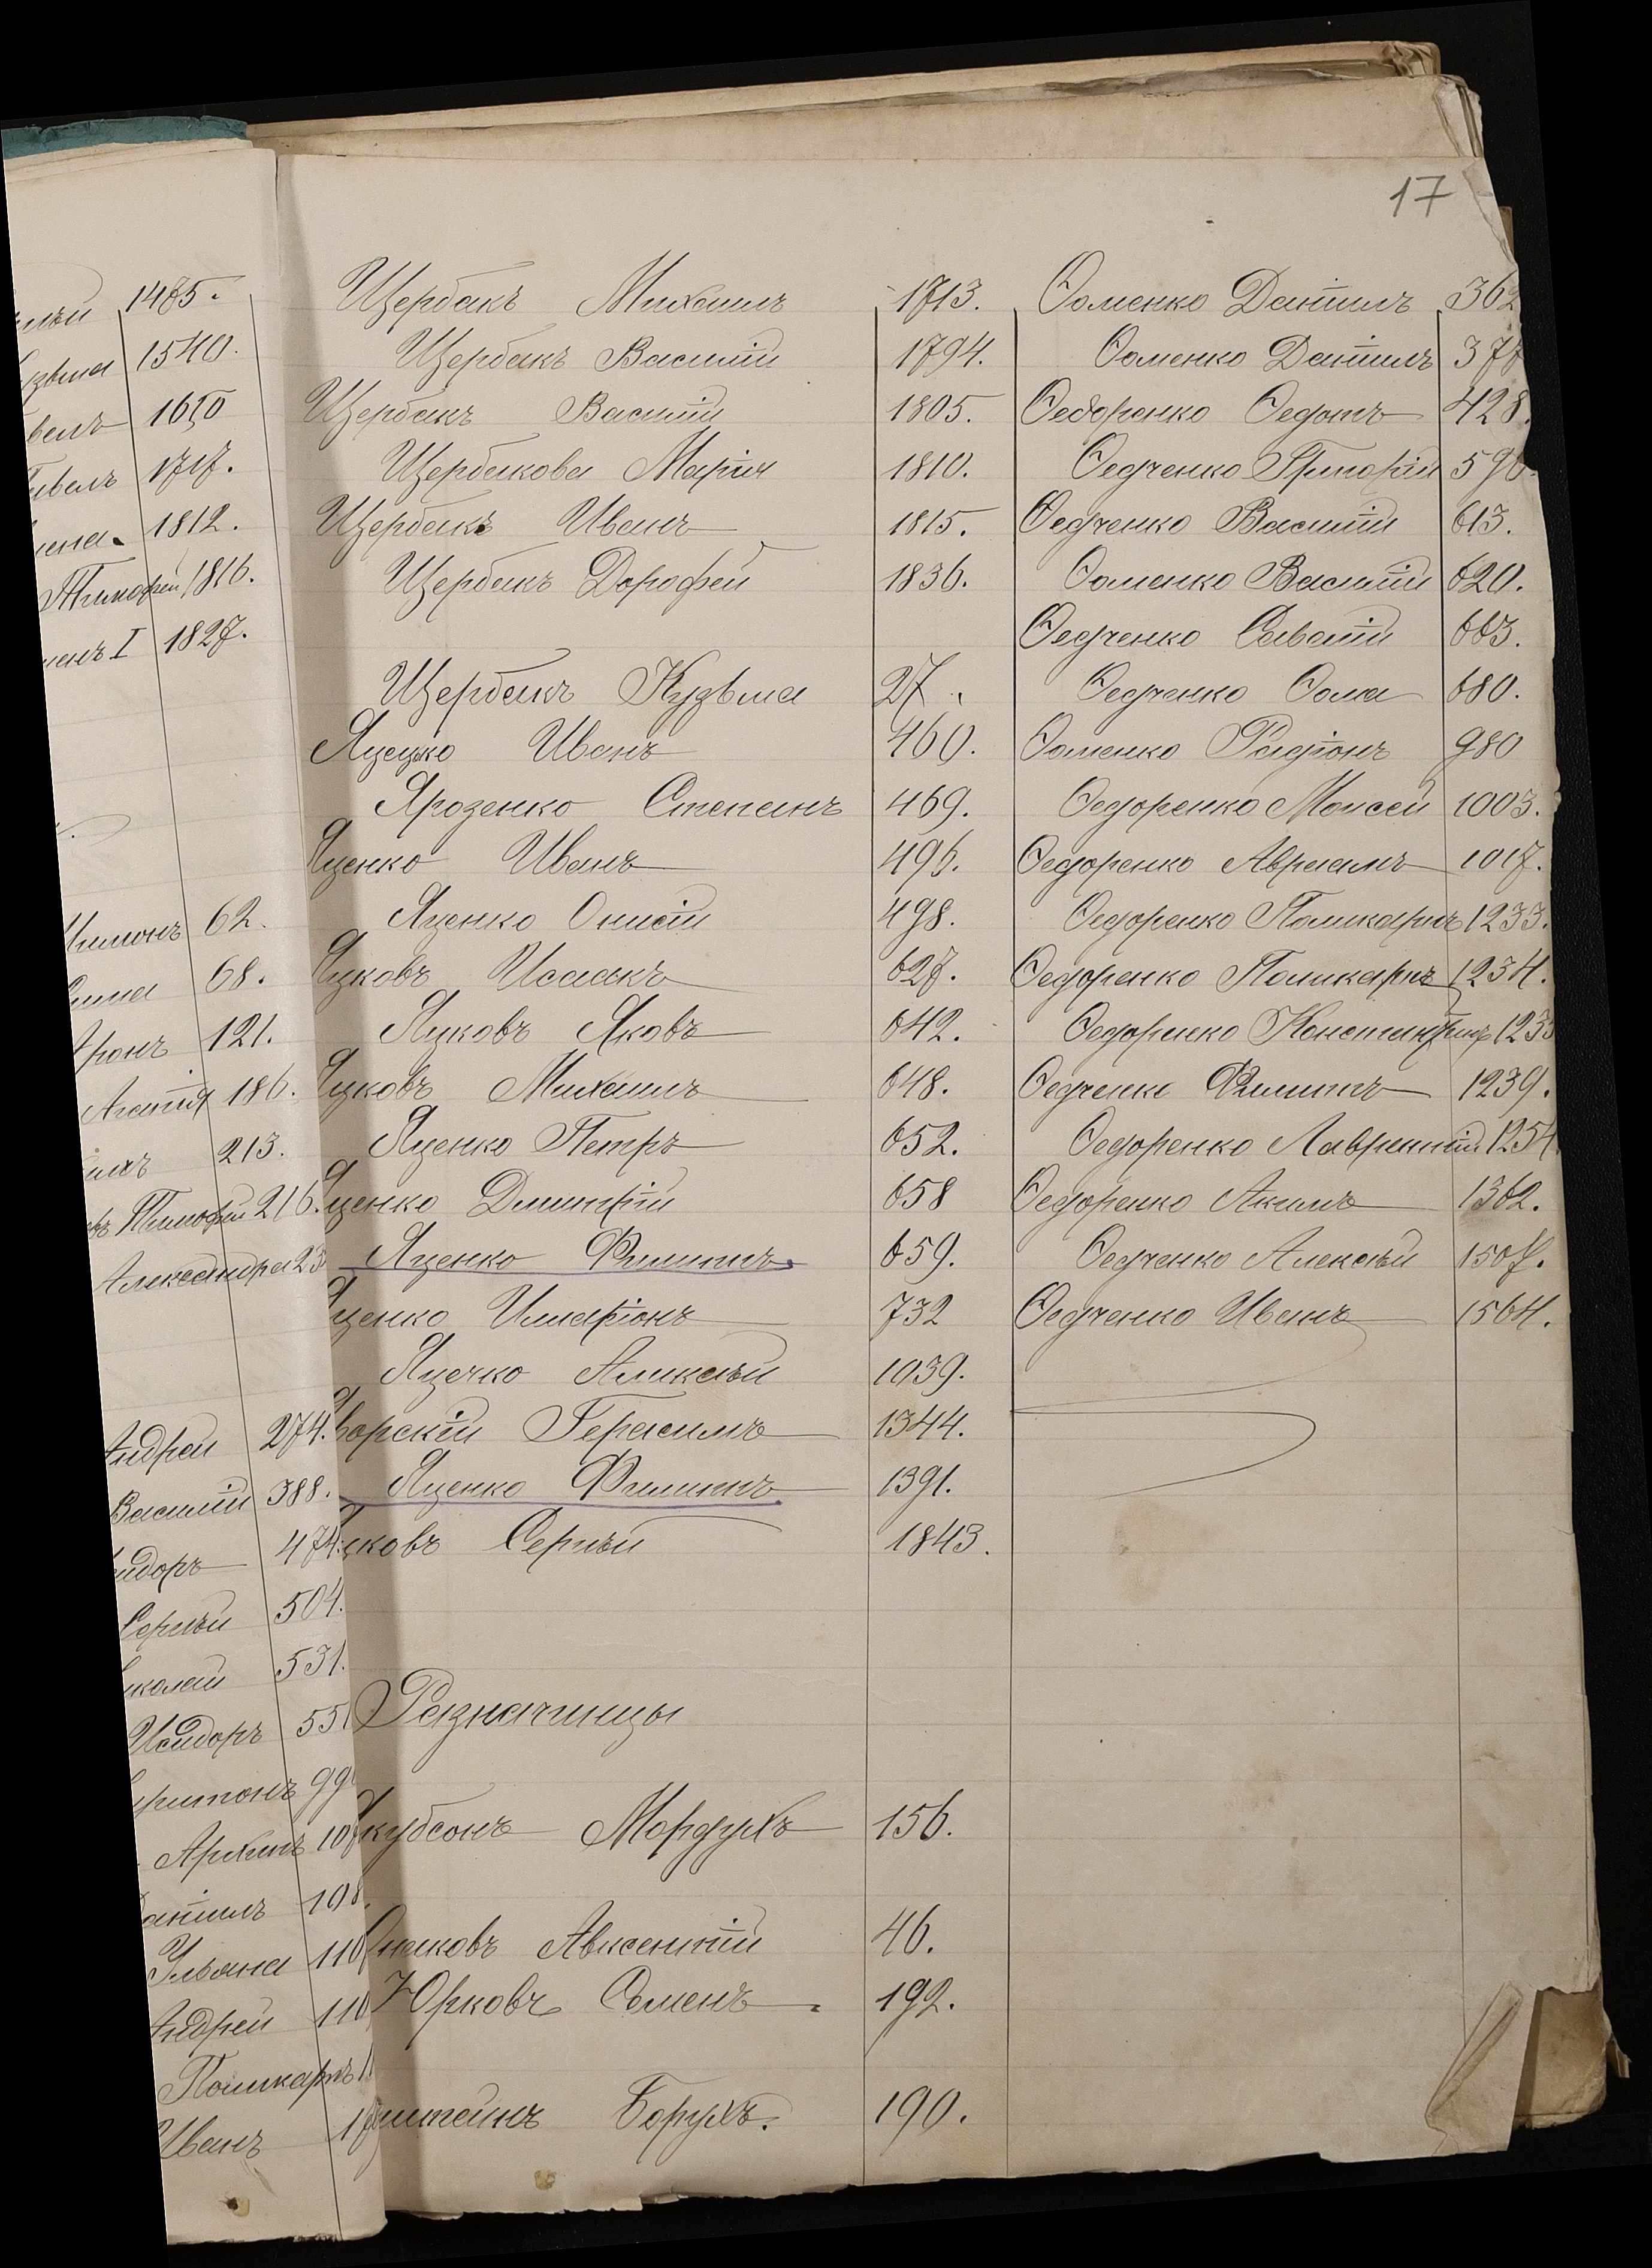 17
1485.
1540.
1650
1717.
1812.
Тимофей 1816.
I 1827.
62.
68.
121.
Агапія 186.
213.
Тимофей 216.
Александра 23
Андрей 274.
Василій 388.
474.
Сергѣй 504.
531.
Исидоръ 551
99
Архипъ 10
108.
Ульяна 110
Андрей 110
Поликарпъ 1
Иванъ
Щербакъ Михаилъ 1713.
Щербакъ Василій 1794.
Щербакъ Василій 1805.
Щербакова Марія 1810.
Щербакъ Иванъ 1815.
Щербакъ Дорофей 1836.
Щербакъ Кузьма 27.
Яцецко Иванъ 460.
Ярозенко Степанъ 469.
Яценко Иванъ 496.
Яценко Онисій 498.
Яцковъ Исаакъ 627.
Яцковъ Яковъ 642.
Яцковъ Михаилъ 648.
Яценко Петръ 652.
Яценко Дмитрій 658
Яценко Филиппъ 659.
Яценко Иларіонъ 732
Яцечко Аликсѣй 1039.
Яворскій Герасимъ 1344.
Яценко Филиппъ 1391.
Яцковъ Сергѣй 1843.
Разночинцы
Якубсонъ Мордухъ 156.
Авксентій 46.
Юрковъ Сѣменъ 192.
Борухъ. 190.
Ѳоменко Даніилъ 362
Ѳоменко Даніилъ 377
Ѳедоренко Ѳедотъ 428.
Ѳедченко Григорій 596.
Ѳедченко Василій 613.
Ѳоменко Василій 620.
Ѳедченко Саватій 663.
Ѳедченко Ѳома 680.
Ѳоменко Радіонъ 980
Ѳедоренко Моисей 1003.
Ѳедоренко Авраамъ 1017.
Ѳедоренко Поликарпъ 1233.
Ѳедоренко Поликарпъ 1234.
Ѳедоренко Константинъ 123
Ѳедченко Филиппъ 1239.
Ѳедоренко Лаврентій 1254
Ѳедоренко Акимъ 1362.
Ѳедченко Алексѣй 1507.
Ѳедченко Иванъ 1564.